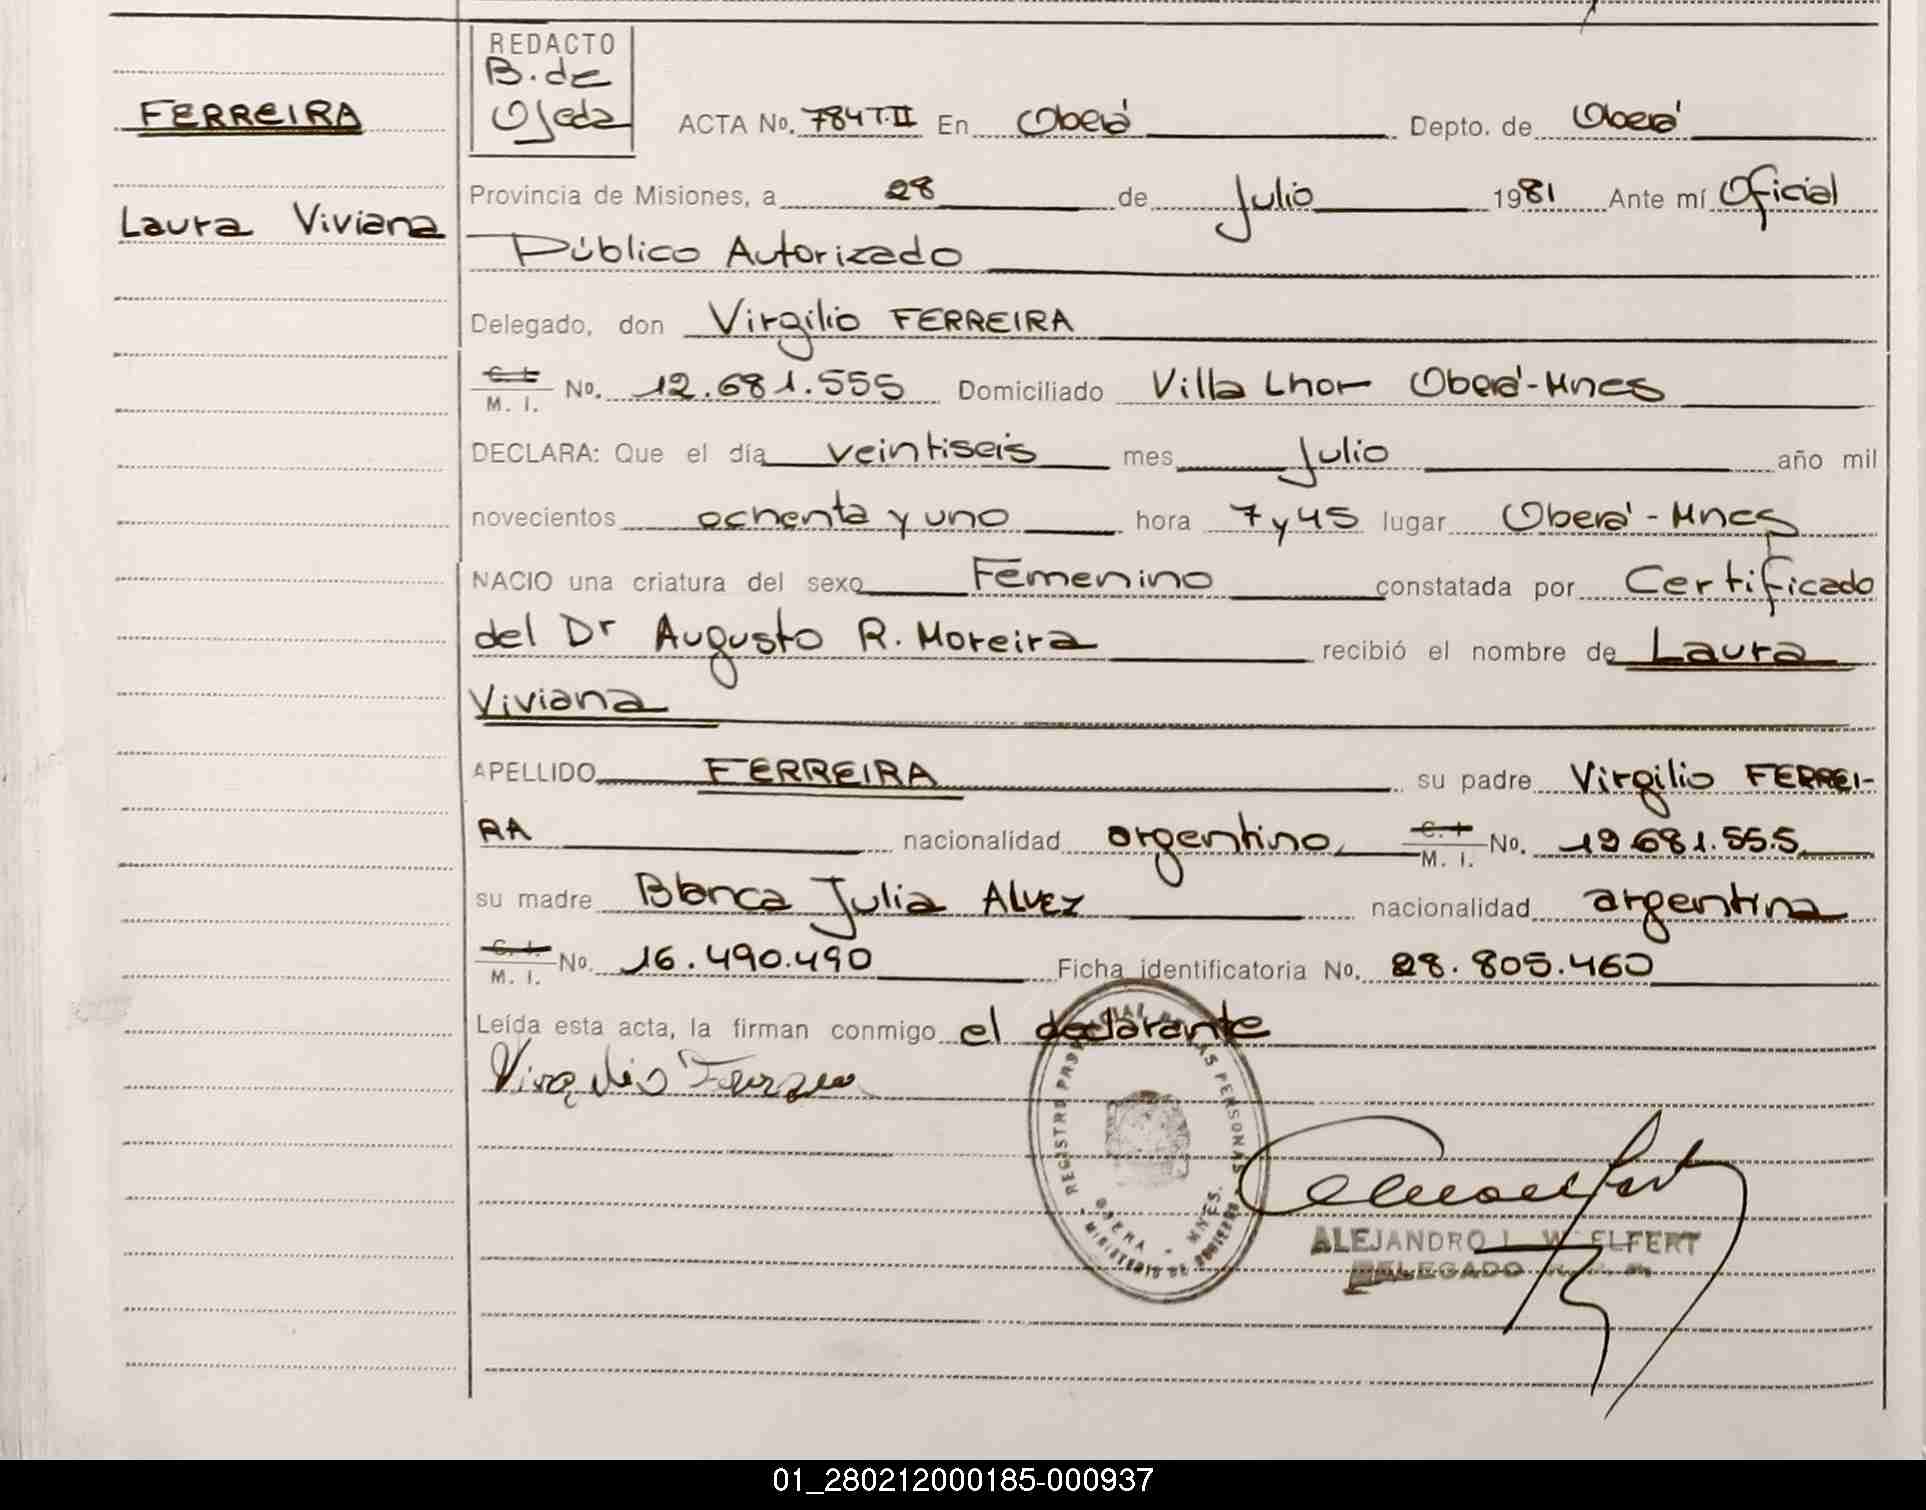 REDACTO
B. de
Ojeda
FERREIRA
Laura Viviana
ACTA No. 784 T.II En Oberá Depto. de Oberá
Provincia de Misiones, a 28 de Julio 1981 Ante mí Oficial
Público Autorizado
Delegado, don Virgilio FERREIRA
C. I. M. I. No. 12.681.555 Domiciliado Villa Lhor Oberá-Mnes
DECLARA: Que el día veintiseis mes Julio año mil
novecientos ochenta y uno hora 7 y 45 lugar Oberá-Mnes
NACIO una criatura del sexo Femenino constatada por Certificado
del Dr Augusto R. Moreira recibió el nombre de Laura
Viviana
APELLIDO FERREIRA su padre Virgilio FERREI-
RA nacionalidad argentino, C. I. M. I. No. 12.681.555
su madre Blanca Julia Alvez nacionalidad argentina
C. I. M. I. No. 16.490.490 Ficha identificatoria No. 28.805.460
Leída esta acta, la firman conmigo el declarante
Virgilio Ferreira
REGISTRO PROVINCIAL DE LAS PERSONAS
OBERA - MNES.
- MINISTERIO DE GOBIERNO -
ALEJANDRO L. W. ELFERT
DELEGADO
01_280212000185-000937